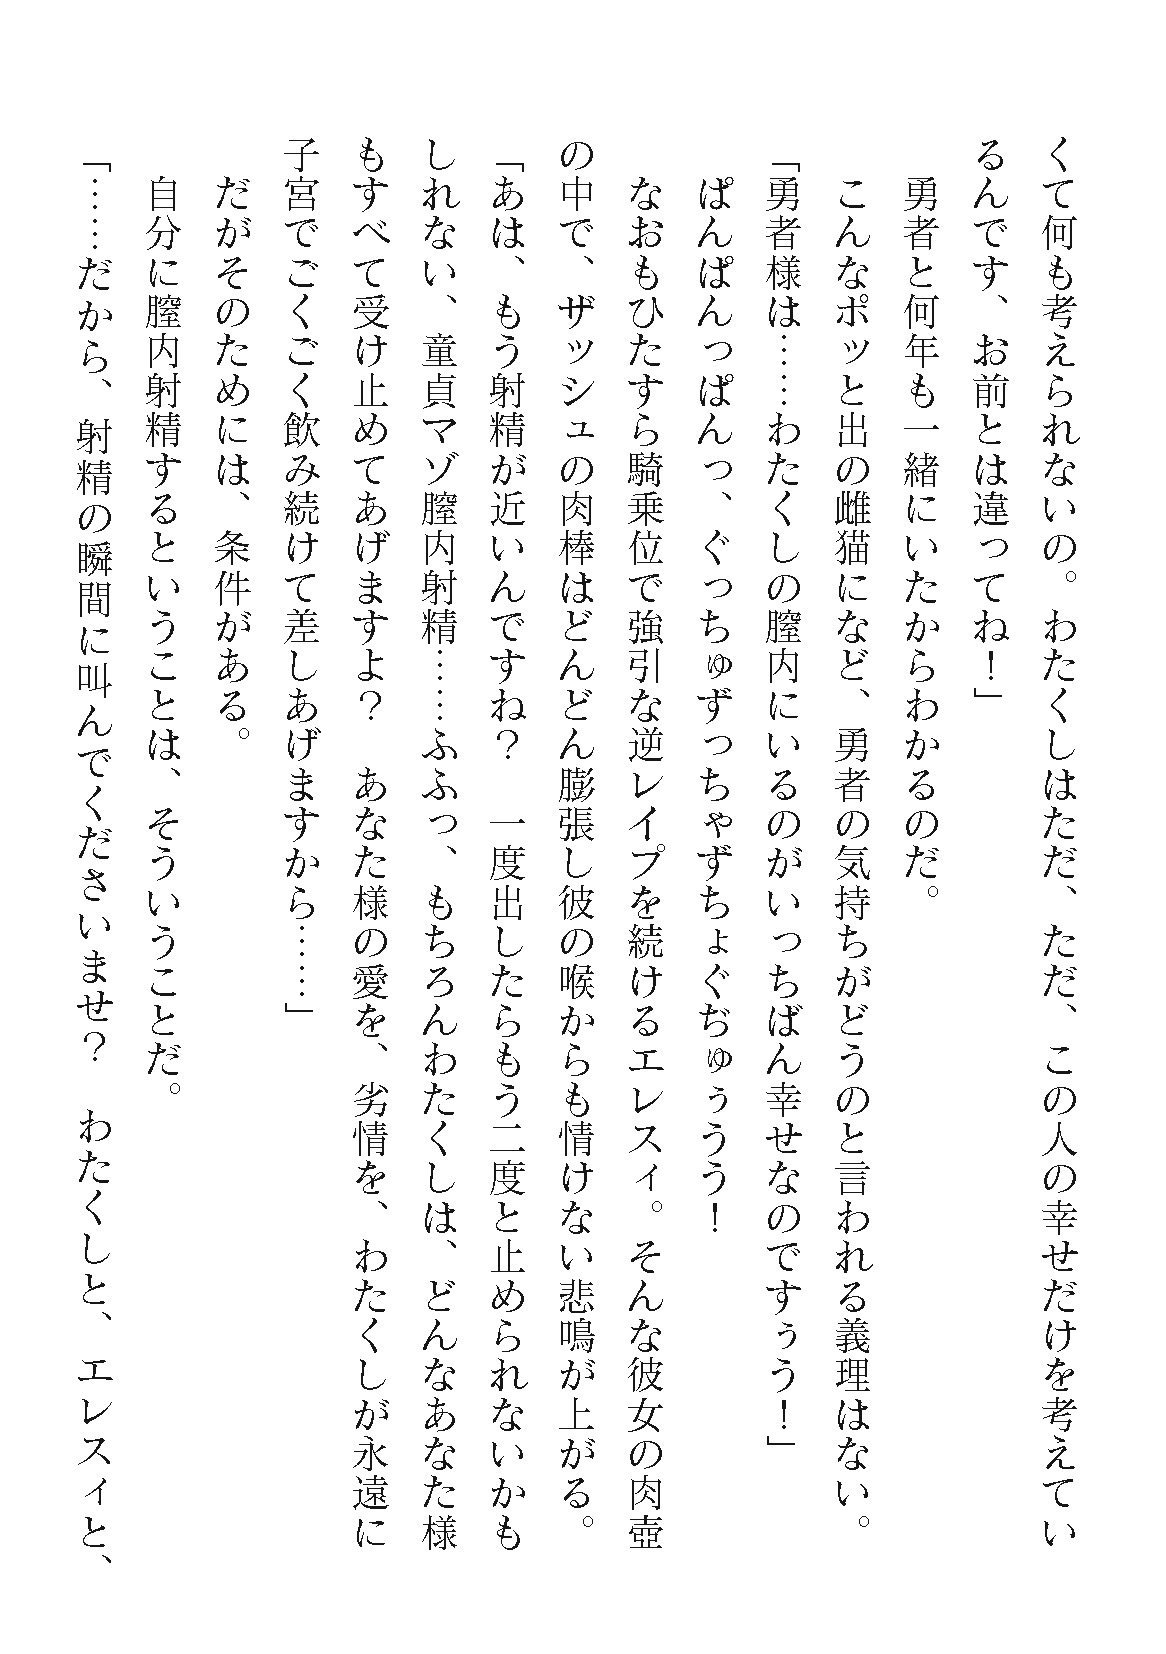 くて何も考えられないの。わたくしはただ、ただ、この人の幸せだけを考えてい
るんです、お前とは違ってね！」
　勇者と何年も一緒にいたからわかるのだ。
　こんなポッと出の雌猫になど、勇者の気持ちがどうのと言われる義理はない。
「勇者様は……わたくしの膣内にいるのがいっちばん幸せなのですぅう！」
　ぱんぱんっぱんっ、ぐっちゅずっちゃずちょぐぢゅぅうう！
　なおもひたすら騎乗位で強引な逆レイプを続けるエレスィ。そんな彼女の肉壺
の中で、ザッシュの肉棒はどんどん膨張し彼の喉からも情けない悲鳴が上がる。
「あは、もう射精が近いんですね？　一度出したらもう二度と止められないかも
しれない、童貞マゾ膣内射精……ふふっ、もちろんわたくしは、どんなあなた様
もすべて受け止めてあげますよ？　あなた様の愛を、劣情を、わたくしが永遠に
子宮でごくごく飲み続けて差しあげますから……」
　だがそのためには、条件がある。
　自分に膣内射精するということは、そういうことだ。
「……だから、射精の瞬間に叫んでくださいませ？　わたくしと、エレスィと、